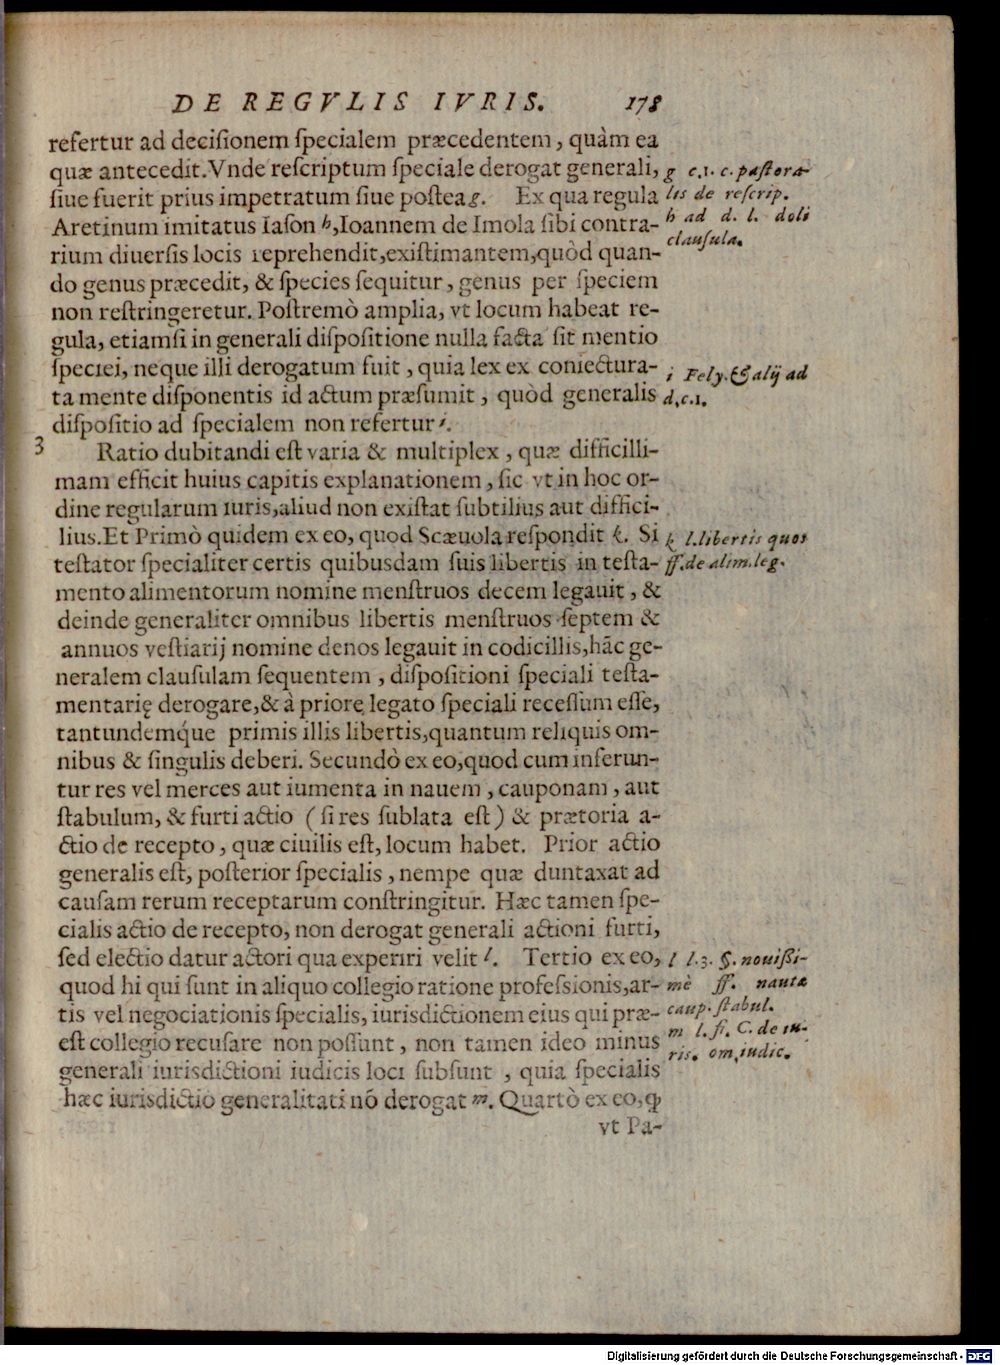 DE REGVLIS IVRIS. 178
refertur ad decisionem specialem præcedentem, quàm ea
quæ antecedit. Vnde rescriptum speciale derogat generali,
siue fuerit prius impetratum siue postea g. Ex qua regula
Aretinum imitatus Iason h, Ioannem de Imola sibi contra-
rium diuersis locis reprehendit, existimantem, quòd quan-
do genus præcedit, & species sequitur, genus per speciem
non restringeretur. Postremò amplia, vt locum habeat re-
gula, etiamsi in generali dispositione nulla facta sit mentio
speciei, neque illi derogatum fuit, quia lex ex coniectura-
ta mente disponentis id actum præsumit, quòd generalis
dispositio ad specialem non refertur i.
3 Ratio dubitandi est varia & multiplex, quæ difficilli-
mam efficit huius capitis explanationem, sic vt in hoc or-
dine regularum iuris, aliud non existat subtilius aut diffici-
lius. Et Primò quidem ex eo, quod Scæuola respondit k. Si
testator specialiter certis quibusdam suis libertis in testa-
mento alimentorum nomine menstruos decem legauit, &
deinde generaliter omnibus libertis menstruos septem &
annuos vestiarij nomine denos legauit in codicillis, hāc ge-
neralem clausulam sequentem, dispositioni speciali testa-
mentarię derogare, & à priore legato speciali recessum esse,
tantundemq́ue primis illis libertis, quantum reliquis om-
nibus & singulis deberi. Secundò ex eo, quod cum inferun-
tur res vel merces aut iumenta in nauem, cauponam, aut
stabulum, & furti actio (si res sublata est) & prætoria a-
ctio de recepto, quæ ciuilis est, locum habet. Prior actio
generalis est, posterior specialis, nempe quæ duntaxat ad
causam rerum receptarum constringitur. Hæc tamen spe-
cialis actio de recepto, non derogat generali actioni furti,
sed electio datur actori qua experiri velit l. Tertio ex eo,
quod hi qui sunt in aliquo collegio ratione professionis, ar-
tis vel negociationis specialis, iurisdictionem eius qui præ-
est collegio recusare non possunt, non tamen ideo minus
generali iurisdictioni iudicis loci subsunt, quia specialis
hæc iurisdictio generalitati nō derogat m. Quartò ex eo, ꝙ
vt Pa-
g c.1. c. pastora-
lis de rescrip.
h ad d. l. doli
clausula.
i Fely. & alij ad
d. c. 1.
k l. libertis quos
ff. de alim. leg.
l l.3. §. nouissi-
mè ff. nautæ
caup. stabul.
m l. fi. C. de iu-
ris. om. iudic.
Digitalisierung gefördert durch die Deutsche Forschungsgemeinschaft - DFG